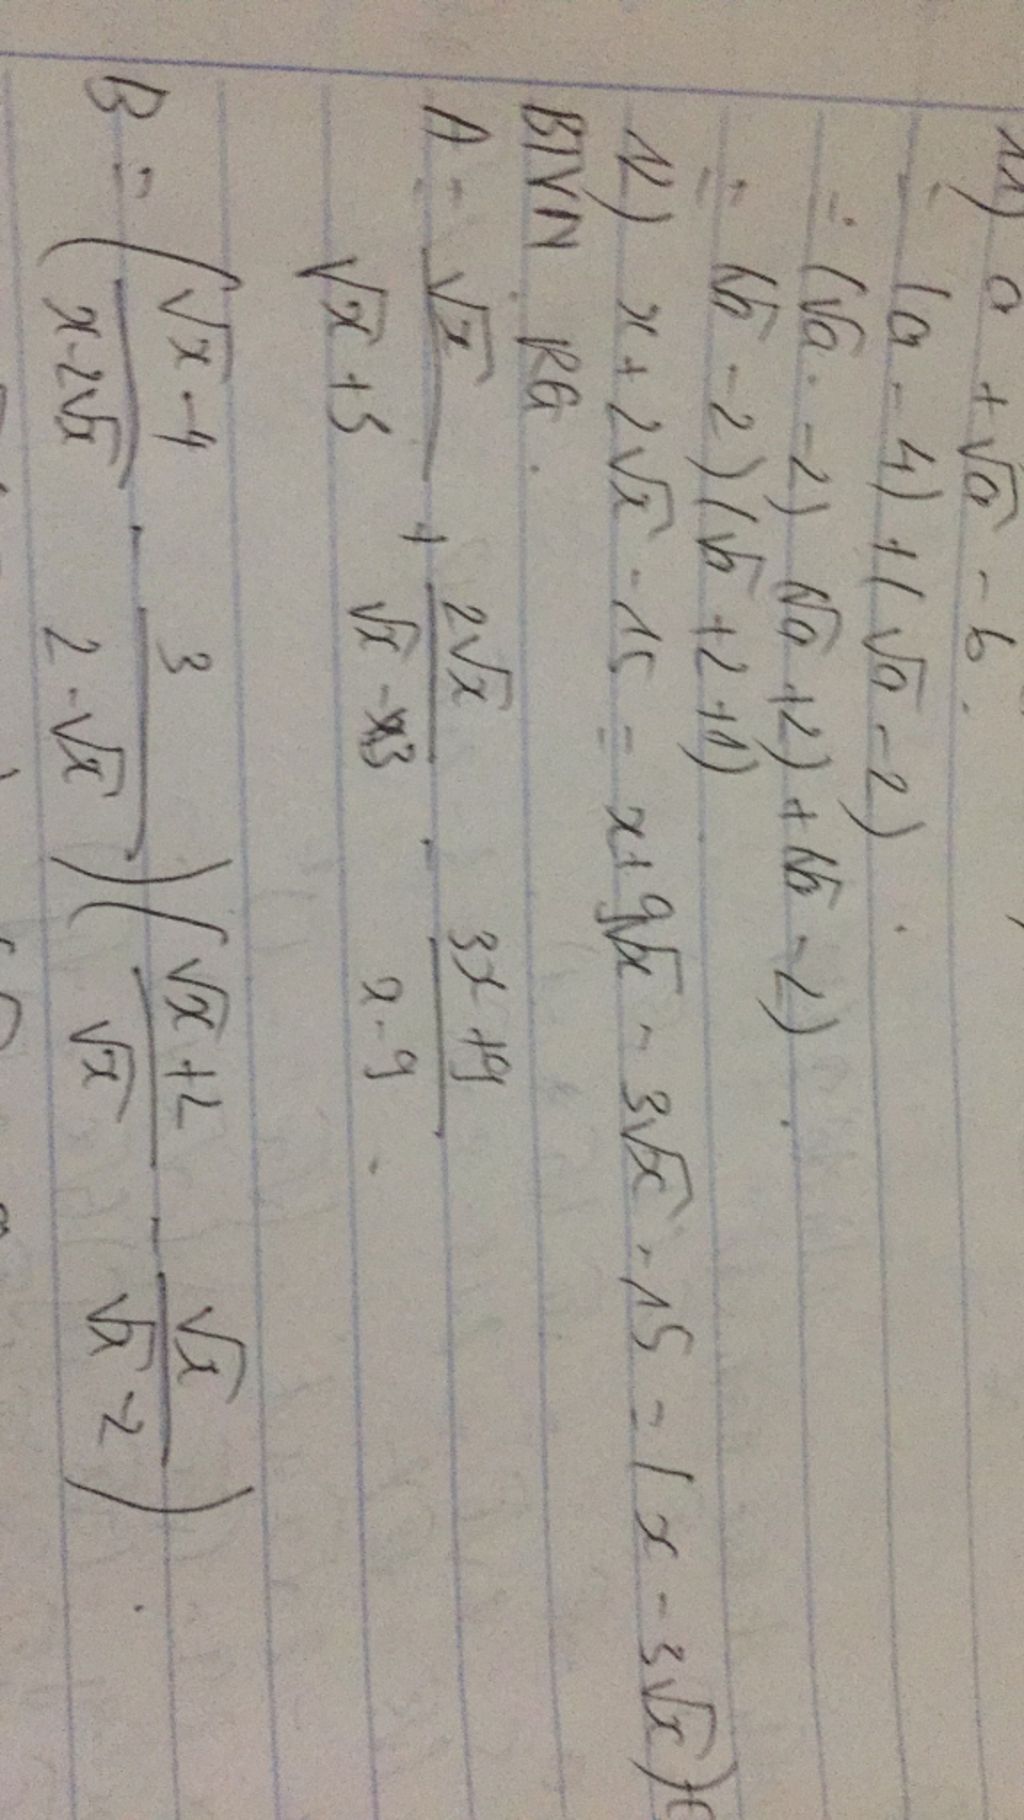 11) a + √a - 6.
= (a - 4) + (√a - 2).
= (√a - 2) (√a + 2) + (√a - 2).
= (√a - 2) (√a + 2 + 1)
12) x + 2√x - 15 = x + 9√x - 3√x - 15 = (x - 3√x) +
BTVN RG.
A = √x / √x + 3 + 2√x / √x - 3 . 3x + 9 / x - 9 .
B = ( √x - 4 / x - 2√x . 3 / 2 - √x ) ( √x + 2 / √x - √x / √x - 2 ) .